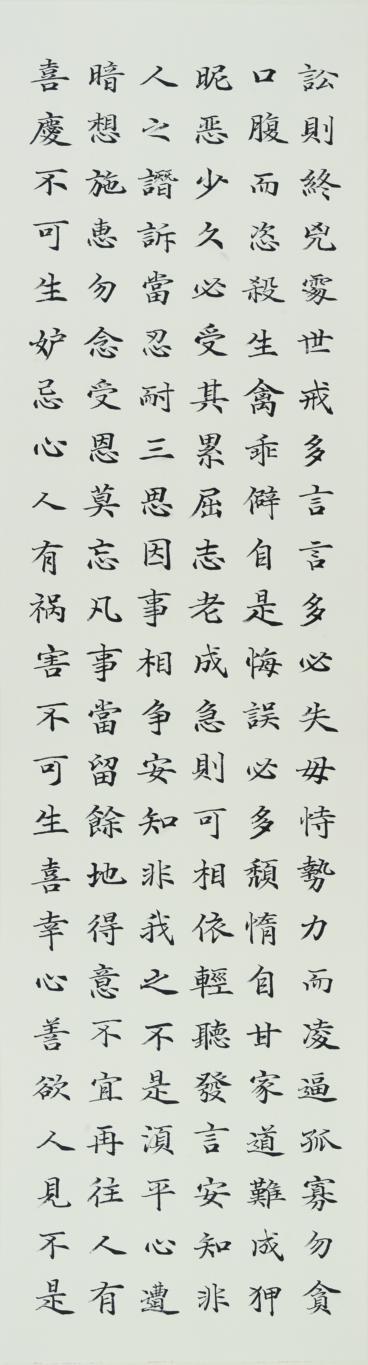 訟則終兇處世戒多言言多必失毋恃勢力而凌逼孤寡勿貪
口腹而恣殺生禽乖僻自是悔誤必多頹惰自甘家道難成狎
昵恶少久必受其累屈志老成急則可相依輕聽發言安知非
人之譖訴當忍耐三思因事相争安知非我之不是湏平心遭
暗想施惠勿念受恩莫忘凡事當留餘地得意不宜再往人有
喜慶不可生妒忌心人有祸害不可生喜幸心善欲人見不是